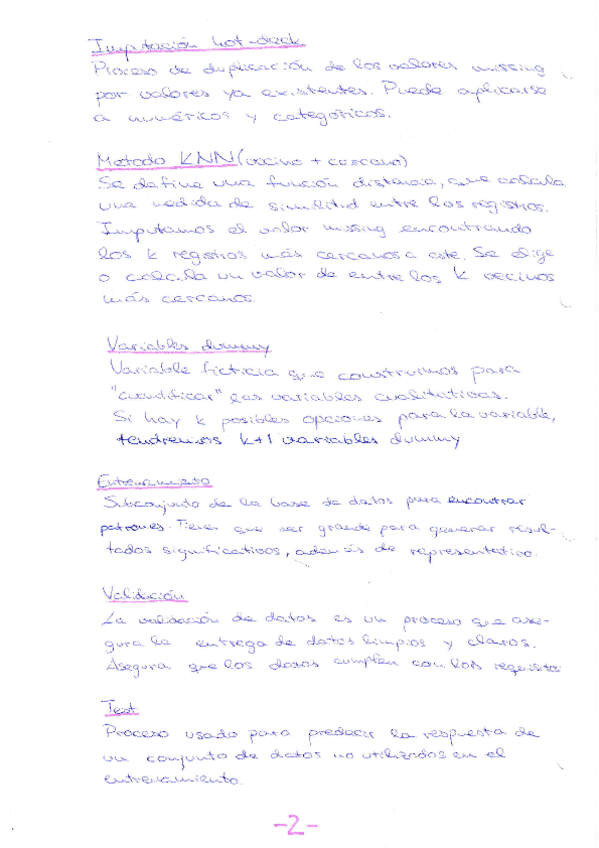 Imputación hot-deck
Proceso de duplicación de los valores missing
por valores ya existentes. Puede aplicarse
a numéricos y categóricos.
Metodo KNN (vecino + cercano)
Se define una función distancia, que calcula
una medida de similitud entre los registros.
Imputamos el valor missing encontrando
los k registros más cercanos a este. Se elige
o calcula un valor de entre los k vecinos
más cercanos.
Variables dummy
Variable ficticia que construimos para
"cuantificar" las variables cualitativas.
Si hay k posibles opciones para la variable,
tendremos k+1 variables dummy
Entrenamiento
Subconjunto de la base de datos para encontrar
patrones. Tiene que ser grande para generar resul-
tados significativos, además de representativo.
Validación
La validación de datos es un proceso que ase-
gura la entrega de datos limpios y claros.
Asegura que los datos cumplen con los requisitos
Test
Proceso usado para predecir la respuesta de
un conjunto de datos no utilizados en el
entrenamiento.
-2-